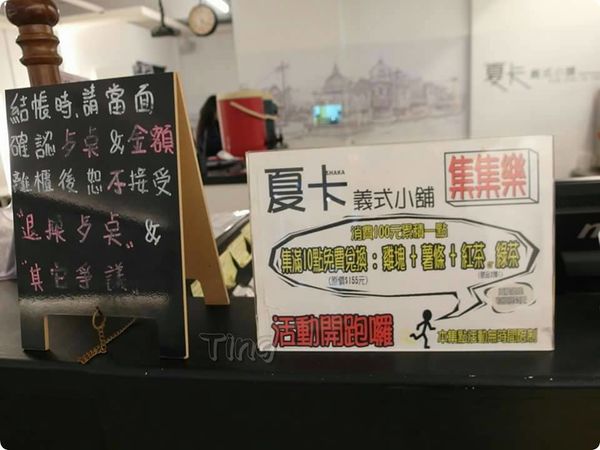 結帳時，請當面
確認点桌&金額
離櫃後恕不接受
"退換点桌"&
"其它爭議"
夏卡
SHAKA
義式小舖
集集樂
消費100元累積一點
集滿10點免費兌換：雞塊＋薯條＋紅茶．綠茶
(原價$155元)
活動開跑囉
本集點活動無時間限制
夏卡
義式小舖
Ting